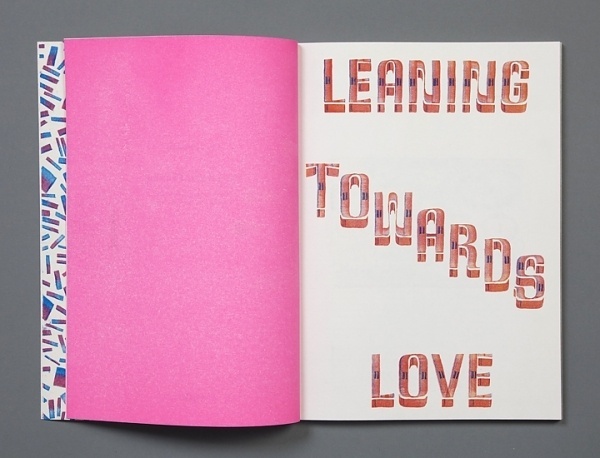 LEANING
TOWARDS
LOVE